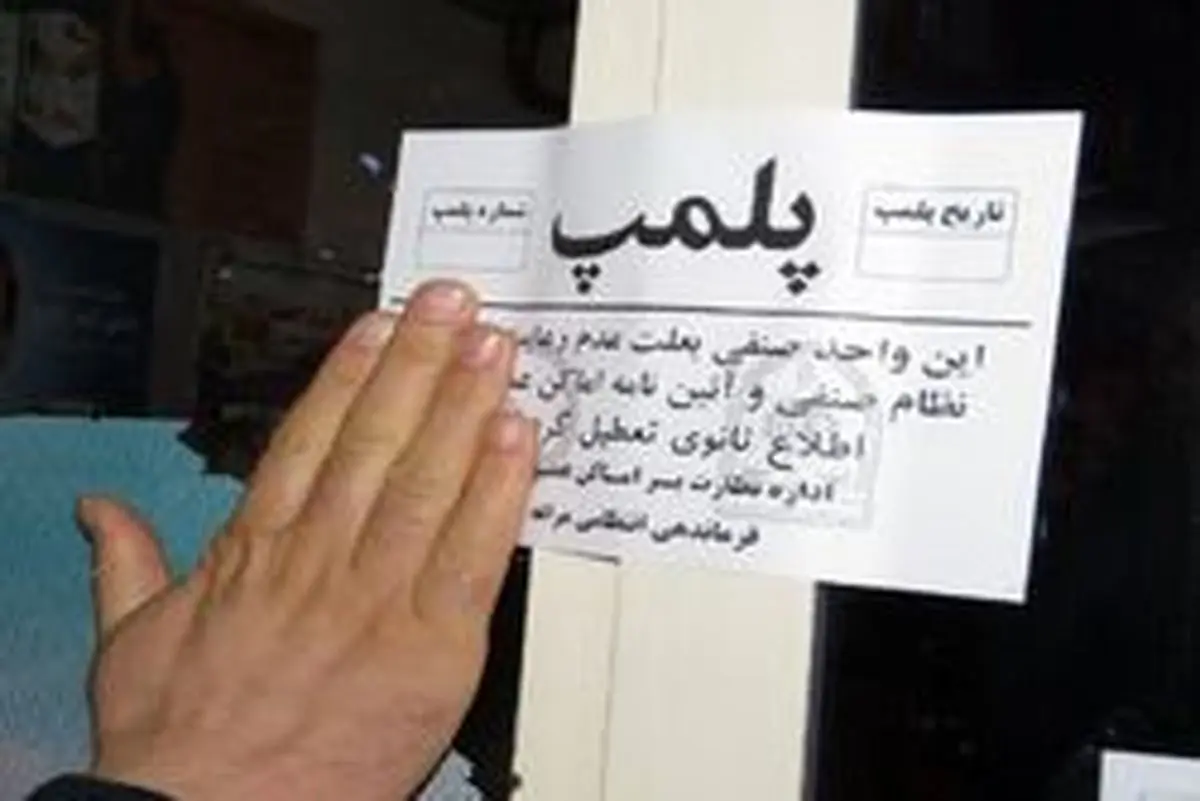 پلمپ
تاریخ پلمپ
شماره پلمپ
این واحد صنفی بعلت عدم
نظام صنفی و آئین نامه اماکن
اطلاع ثانوی تعطیل
اداره نظارت بر اماکن
فرماندهی انتظامی